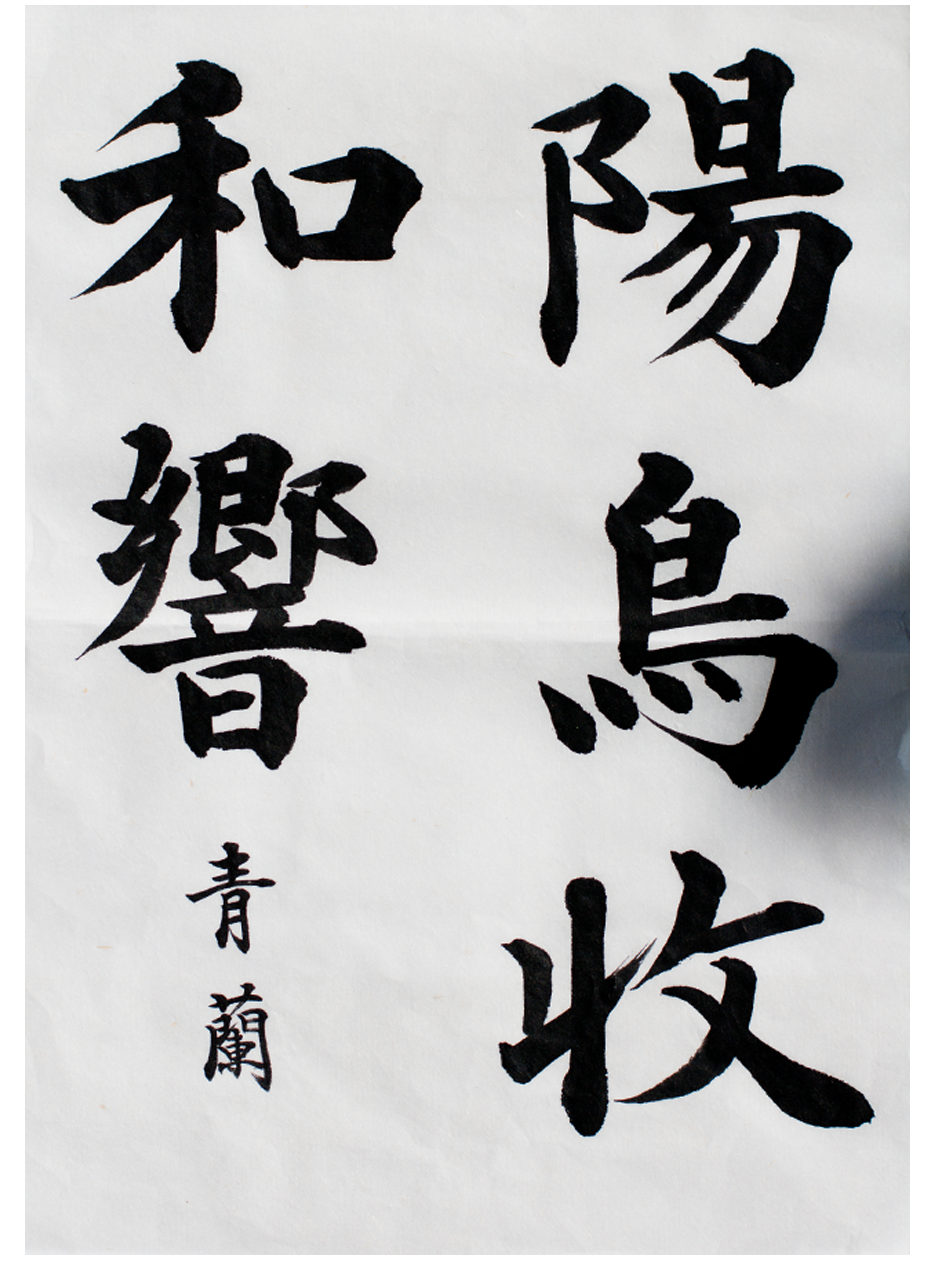 陽鳥收
和響
青蘭